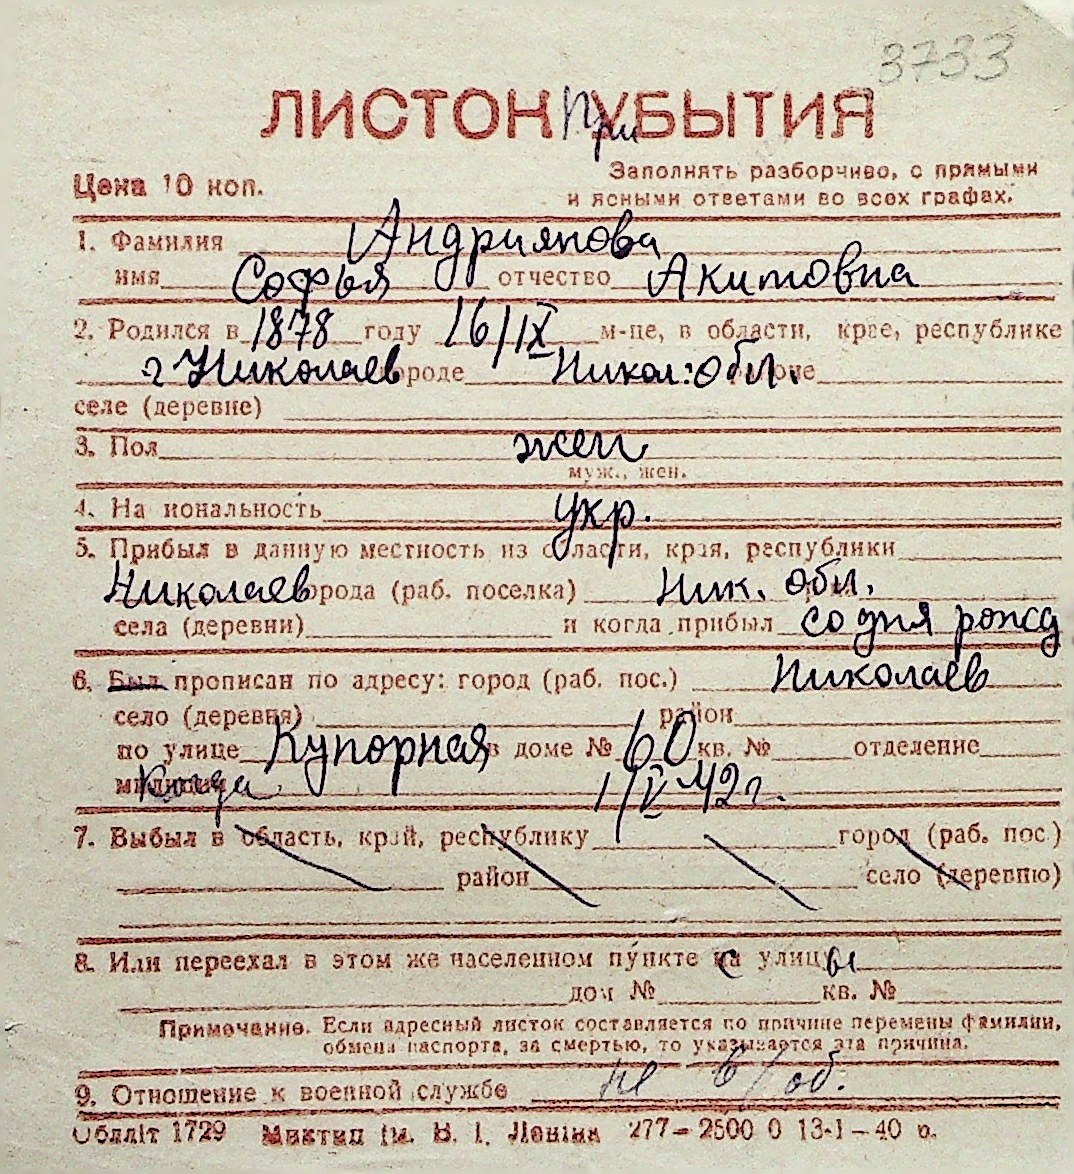 3733
ЛИСТОК При УБЫТИЯ
Цена 10 коп.
Заполнять разборчиво, с прямыми
и ясными ответами во всех графах.
1. Фамилия Андриянова
имя Софья отчество Акимовна
2. Родился в 1878 году 16/IX м-це, в области, крае, республике
г Николаев городе Никол: обл. районе
селе (деревне)
3. Пол жен
муж., жен.
4. На иональность укр.
5. Прибыл в данную местность из области, края, республики
Николаев города (раб. поселка) Ник. обл.
села (деревни) и когда прибыл со дня рожд
6. Был прописан по адресу: город (раб. пос.) Николаев
село (деревня) район
по улице Купорная в доме № 60 кв. № отделение
милиции Когда 1/V-42 г.
7. Выбыл в область, край, республику город (раб. пос.)
район село (деревню)
8. Или переехал в этом же населенном пункте с улицы
дом № кв. №
Примечание. Если адресный листок составляется по причине перемены фамилии,
обмена паспорта, за смертью, то указывается эта причина.
9. Отношение к военной службе не в/об.
Обллiт 1729 Миктип iм. В. I. Ленiна 277–2500 0 13-I–40 р.